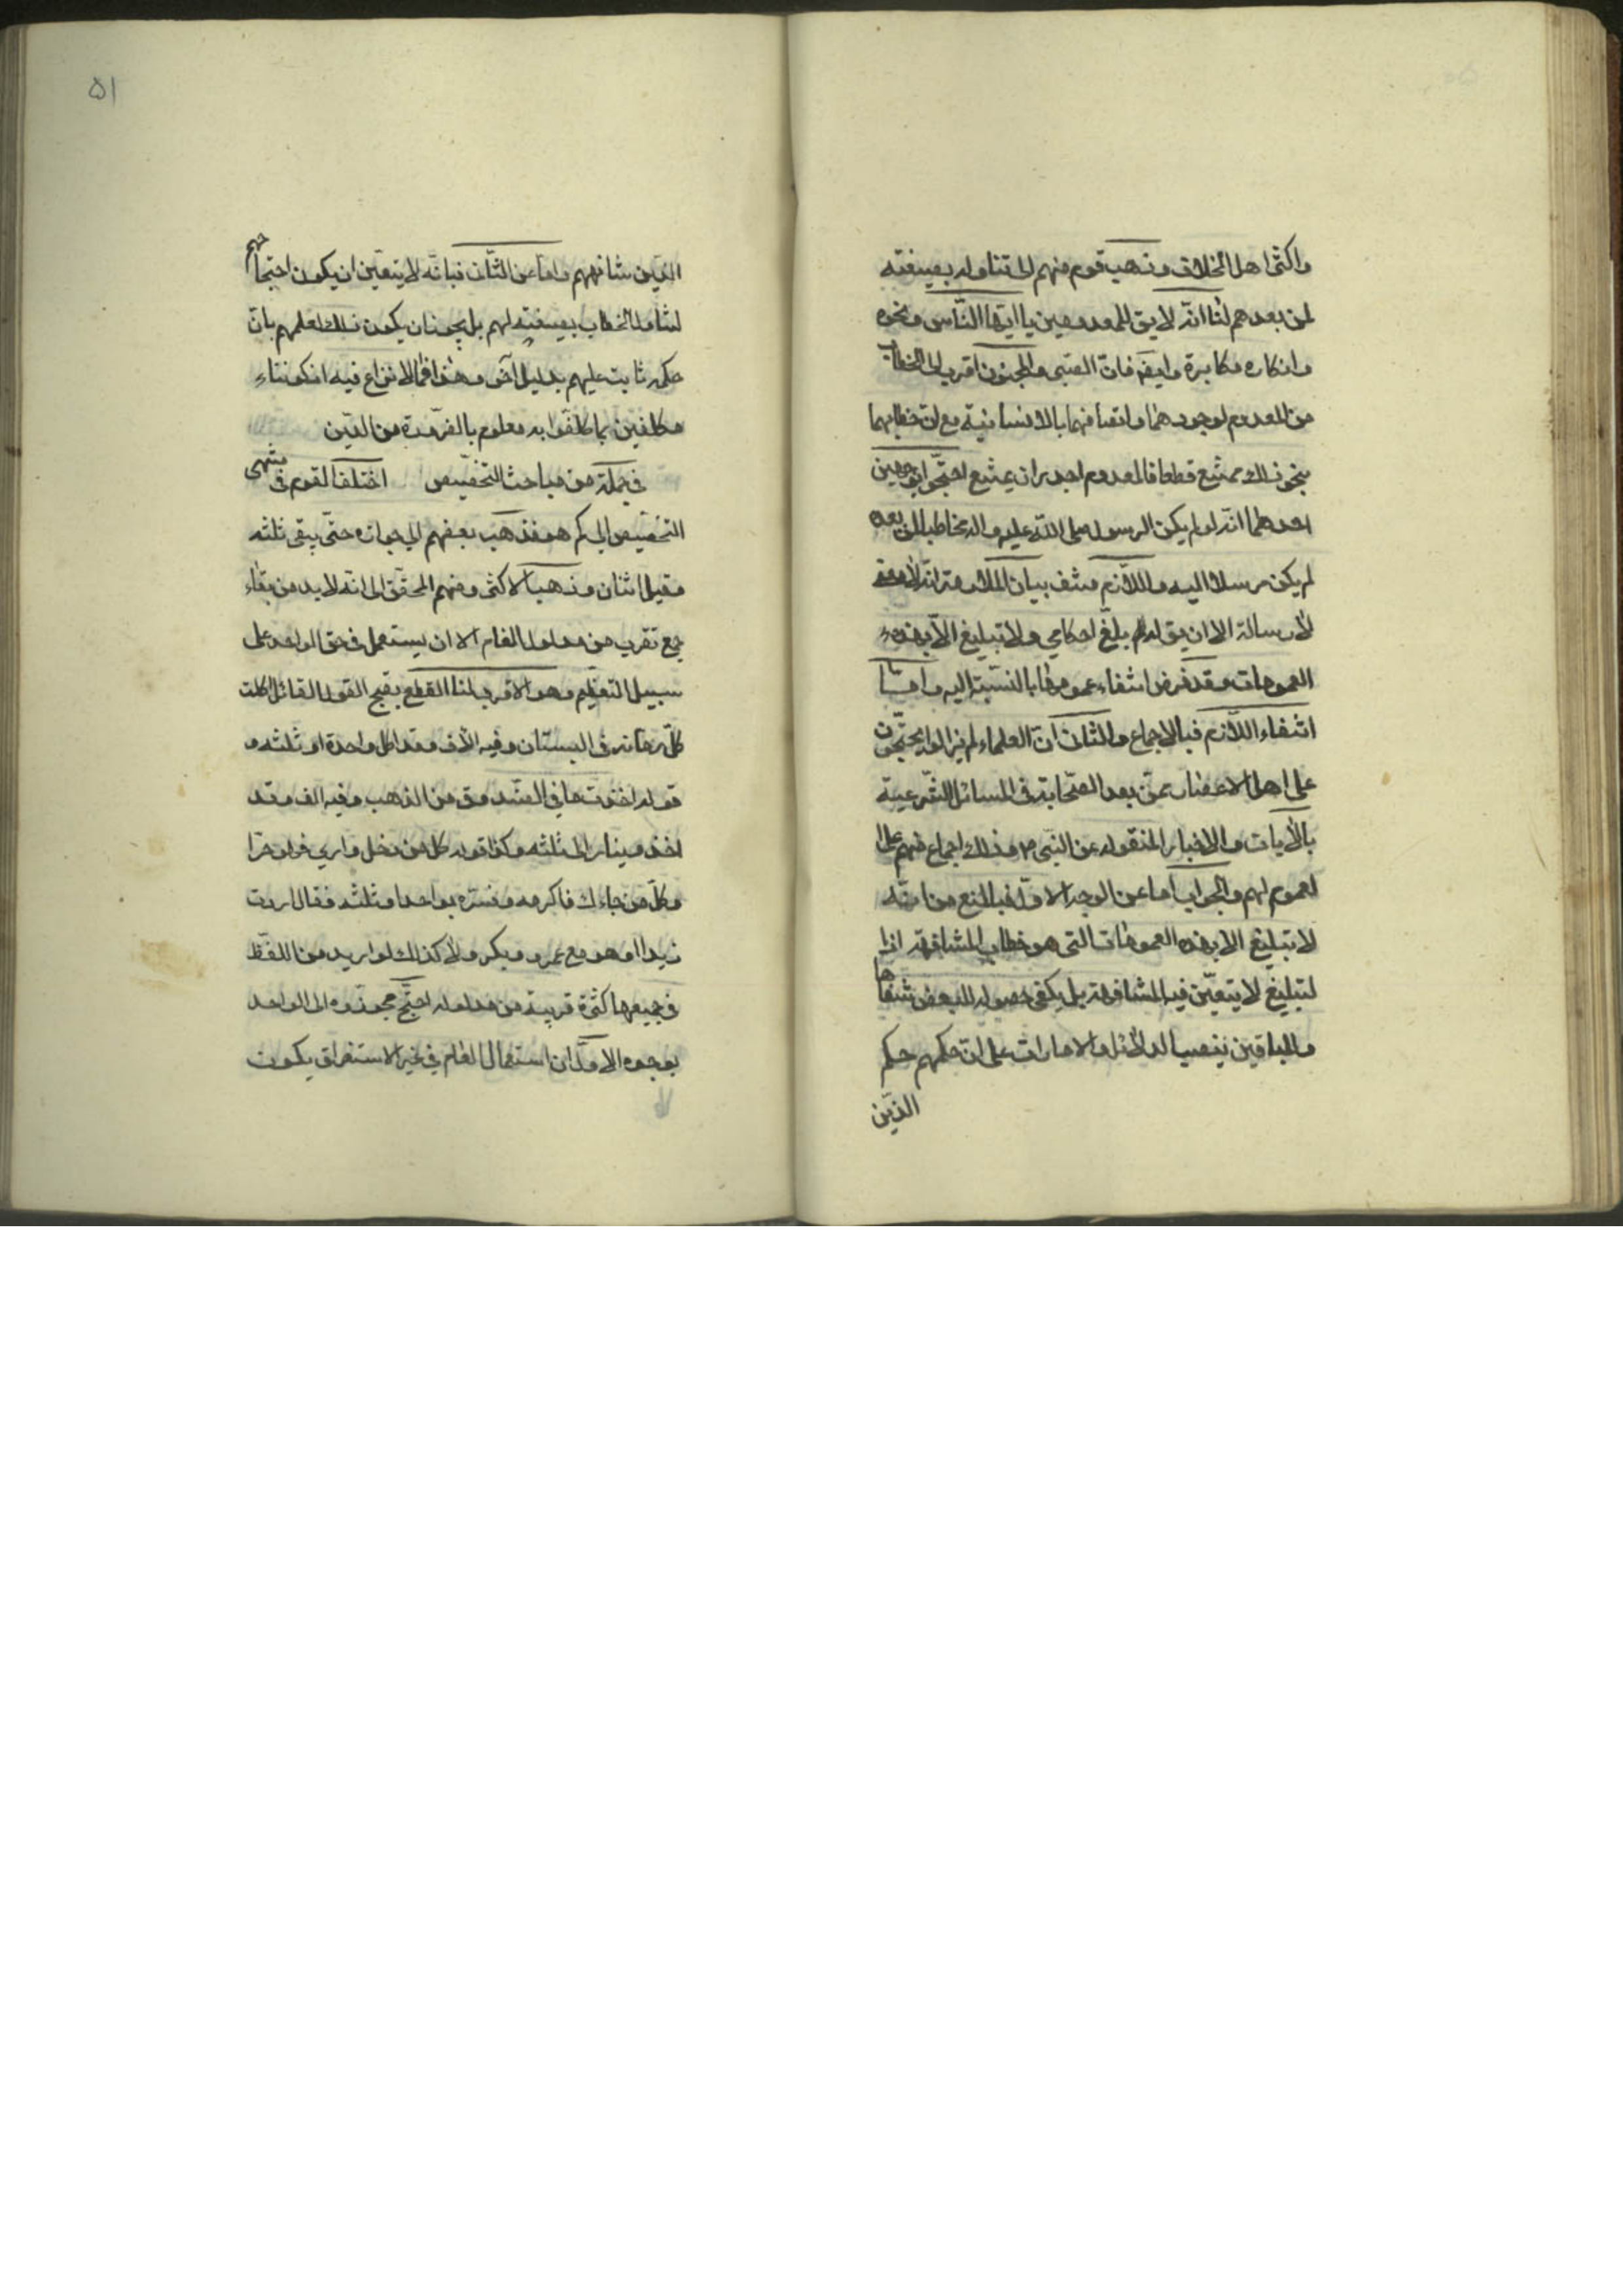 واكثر اهل الخلاف وذهب قوم منهم الى تناوله بصيغته
لمن بعدهم لنا انه لا يق للمعدومين يا ايها الناس ونحوه
وانكاره مكابرة وايضا فان الصبى والمجنون اقرب الى الخطاب
من المعدوم لوجودهما واتصافهما بالانسانية مع ان خطابهما
بنحو ذلك ممتنع قطعا فالمعدوم اجدر ان يمتنع احتجوا بوجهين
احدهما انه لو لم يكن الرسول صلى الله عليه واله مخاطبا لمن بعده
لم يكن مرسلا اليه واللازم منتف بيان الملازمة انه لا معنى
لارسالة الا ان يق له بلغ احكامي ولا تبليغ الا بهذه
العمومات وقد فرض انتفاء عمومها بالنسبة اليه واما
انتفاء اللازم فبالاجماع والثانى ان العلماء لم يزالوا يحتجون
على اهل الاعصار ممن بعد الصحابة فى المسائل الشرعية
بالآيات والاخبار المنقوله عن النبى ص وذلك اجماع منهم على
لعموم لهم والجواب اما عن الوجه الاول فبالمنع من انه
لا تبليغ الا بهذه العمومات التى هو خطاب المشافهة اذ
لتبليغ لا يتعين فيه المشافهة بل يكفى حصوله للبعض شفاها
وللباقين بنصب الدلائل والامارات على ان حكمهم حكم
الذين
۵۱
الذين شافههم واما عن الثانى فبانه لا يتعين ان يكون احتجاجهم
لتناول الخطاب بصيغته لهم بل يجوز ان يكون ذلك لعلمهم بان
حكمه ثابت عليهم بدليل آخر وهذا مما لا نزاع فيه اذ كوننا
مكلفين بما كلفوا به معلوم بالضرورة من الدين
فى جملة من مباحث التخصيص اختلف القوم فى منتهى
التخصيص الى كم هو فذهب بعضهم الى جوازه حتى يبقى ثلثه
وقيل اثنان وذهب الاكثر ومنهم المحقق الى انه لا بد من بقاء
جمع تقرب من مدلول العام الا ان يستعمل فى حق الواحد على
سبيل التعظيم وهو الاقرب لنا القطع بقبح القول القائل اكلت
كل رمانة فى البستان وفيه الآف وقد اكل واحدة او ثلثه و
قوله اخذت ما في الصندوق من الذهب وفيه الف وقد
اخذ دينار الى ثلثه وكذا قوله كل من دخل داري فهو حر او
وكل من جاءك فاكرمه وفسره بواحد او ثلثه فقال اردت
زيدا او هو مع عمرو وبكر ولا كذلك لو اريد من اللفظ
فى جميعها كثرة قريبة من مدلوله احتج مجوزوه الى الواحد
بوجوه الاول ان استعمال العام في غير الاستغراق يكون